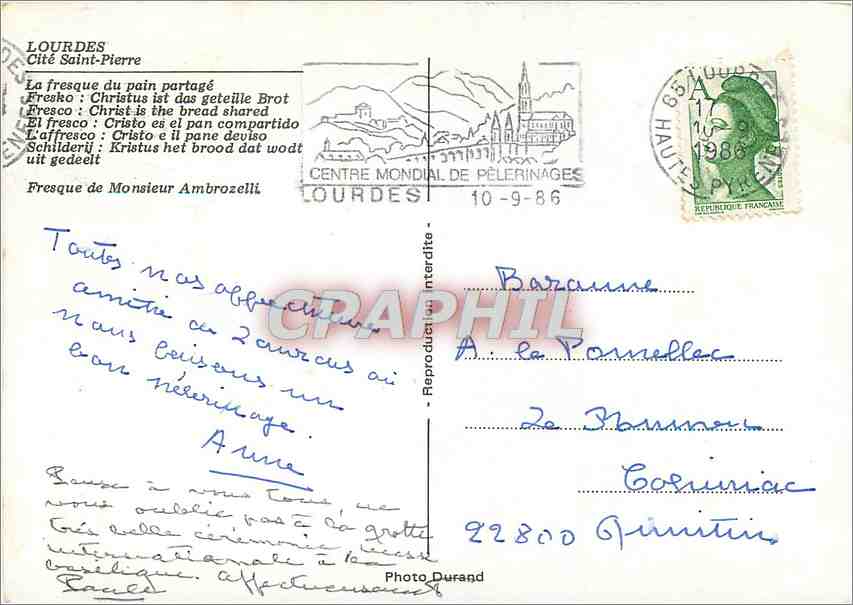 LOURDES
Cité Saint-Pierre
La fresque du pain partagé
Fresko : Christus ist das geteille Brot
Fresco : Christ is the bread shared
El fresco : Cristo es el pan compartido
L'affresco : Cristo e il pane deviso
Schilderij : Kristus het brood dat wodt
uit gedeelt
Fresque de Monsieur Ambrozelli
CENTRE MONDIAL DE PÈLERINAGES
LOURDES 10-9-86
65 LOURDES
HAUTES PYRENEES
A
17
10 9
1986
REPUBLIQUE FRANÇAISE
Toutes nos affectueuses
amitiés de Lourdes où
nous faisons un
bon pèlerinage.
Anne
Pense à vous tous, ne
vous oublie pas à la grotte
très belle cérémonie, messe
internationale à la
basilique. affectueusement
Paule
Reproduction interdite
Photo Durand
CPARPHIL
A. Le
22800 Quintin